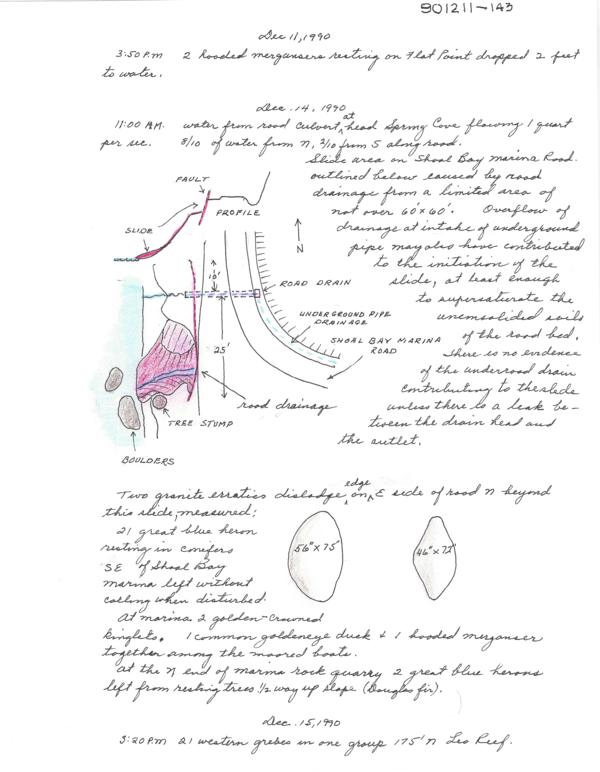 901211-143
Dec 11, 1990
3:50 P.M 2 hooded mergansers resting on Flat Point dropped 2 feet
to water.
Dec. 14, 1990
11:00 A.M. water from road culvert at head Spring Cove flowing 1 quart
per sec. 8/10 of water from N, 2/10 from S along road.
Slide area on Shoal Bay marina Road.
outlined below caused by road
drainage from a limited area of
not over 60'x60'. Overflow of
drainage at intake of underground
pipe may also have contributed
to the initiation of the
slide, at least enough
to supersaturate the
unconsolided soils
of the road bed.
There is no evidence
of the underroad drain
contributing to the slide
unless there is a leak be-
tween the drain head and
the outlet.
FAULT
PROFILE
SLIDE
N
10'
ROAD DRAIN
UNDERGROUND PIPE
DRAINAGE
SHOAL BAY MARINA
ROAD
25'
road drainage
TREE STUMP
BOULDERS
Two granite erratics dislodge, on edge E side of road N beyond
this slide, measured;
21 great blue heron
resting in conifers
SE of Shoal Bay
marina left without
calling when disturbed.
56" x 75"
46" x 72"
At marina 2 golden-crowned
kinglets. 1 common goldeneye duck & 1 hooded merganser
together among the moored boats.
At the N end of marina rock quarry 2 great blue herons
left from resting trees 1/2 way up slope (Douglas fir).
Dec. 15, 1990
3:20 P.M 21 western grebes in one group 175' N Leo Reef.